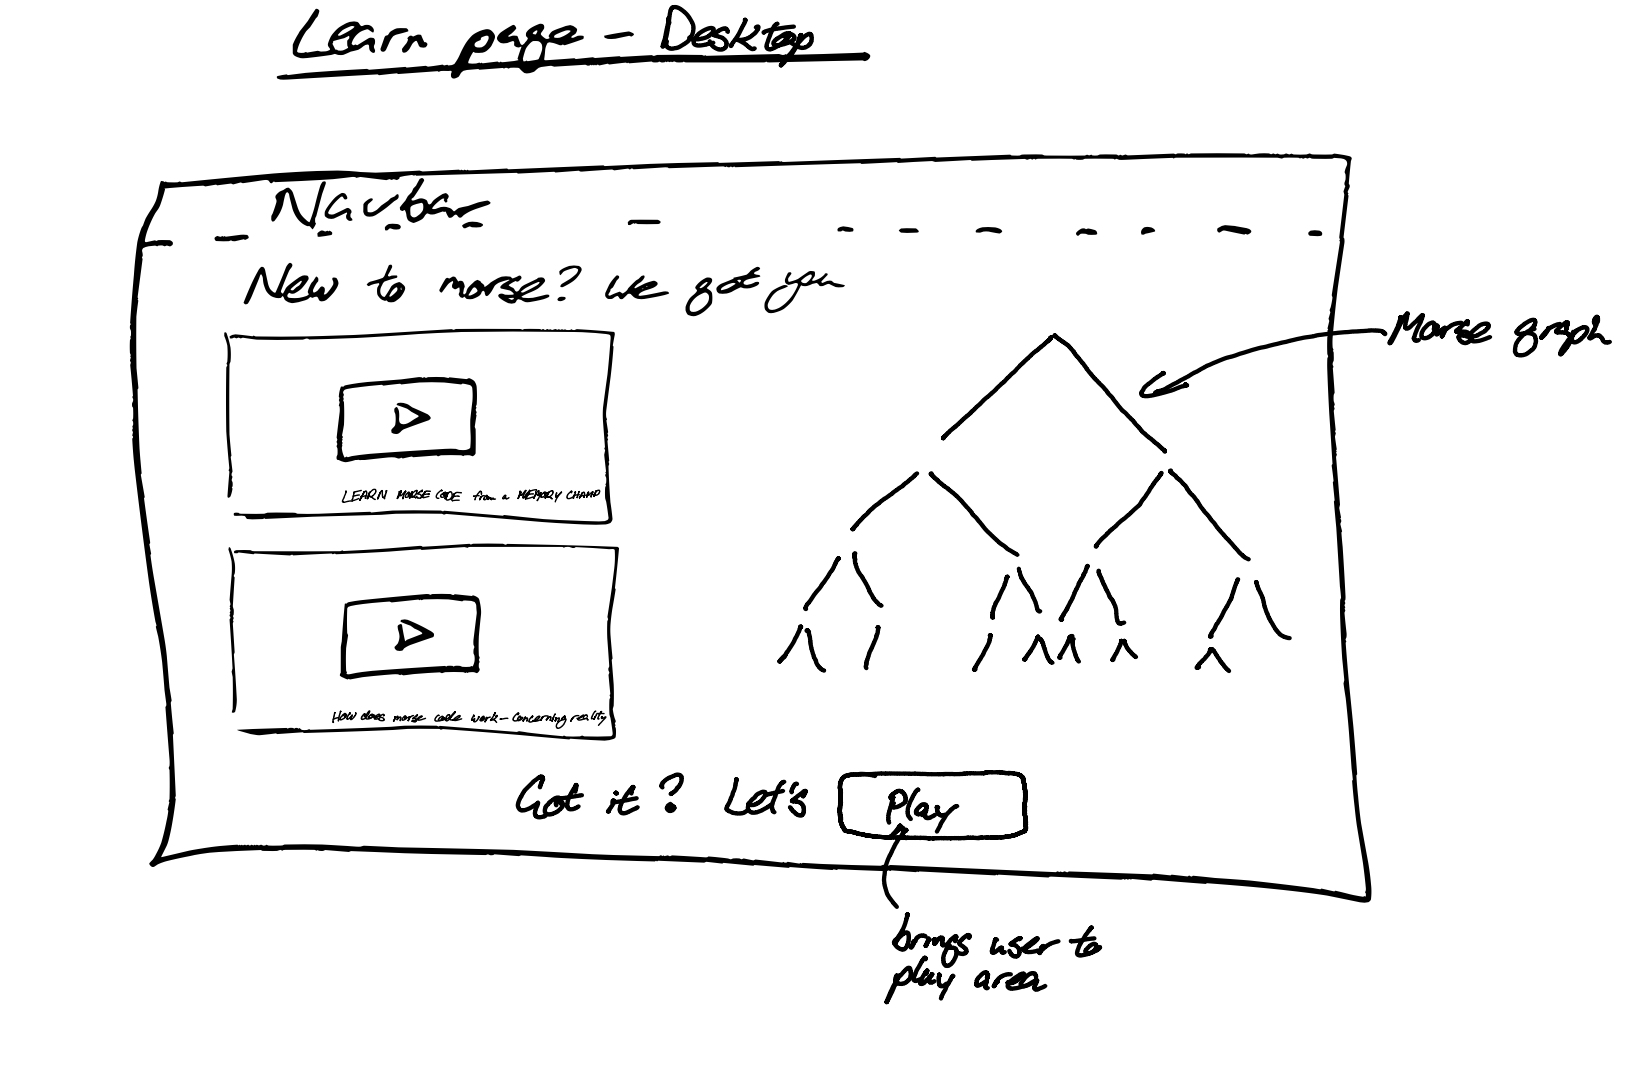 Learn page - Desktop
Navbar
New to morse? we got you
Morse graph
LEARN MORSE CODE from a MEMORY CHAMP
How does morse code work - Concerning reality
Got it? Let's Play
brings user to
play area